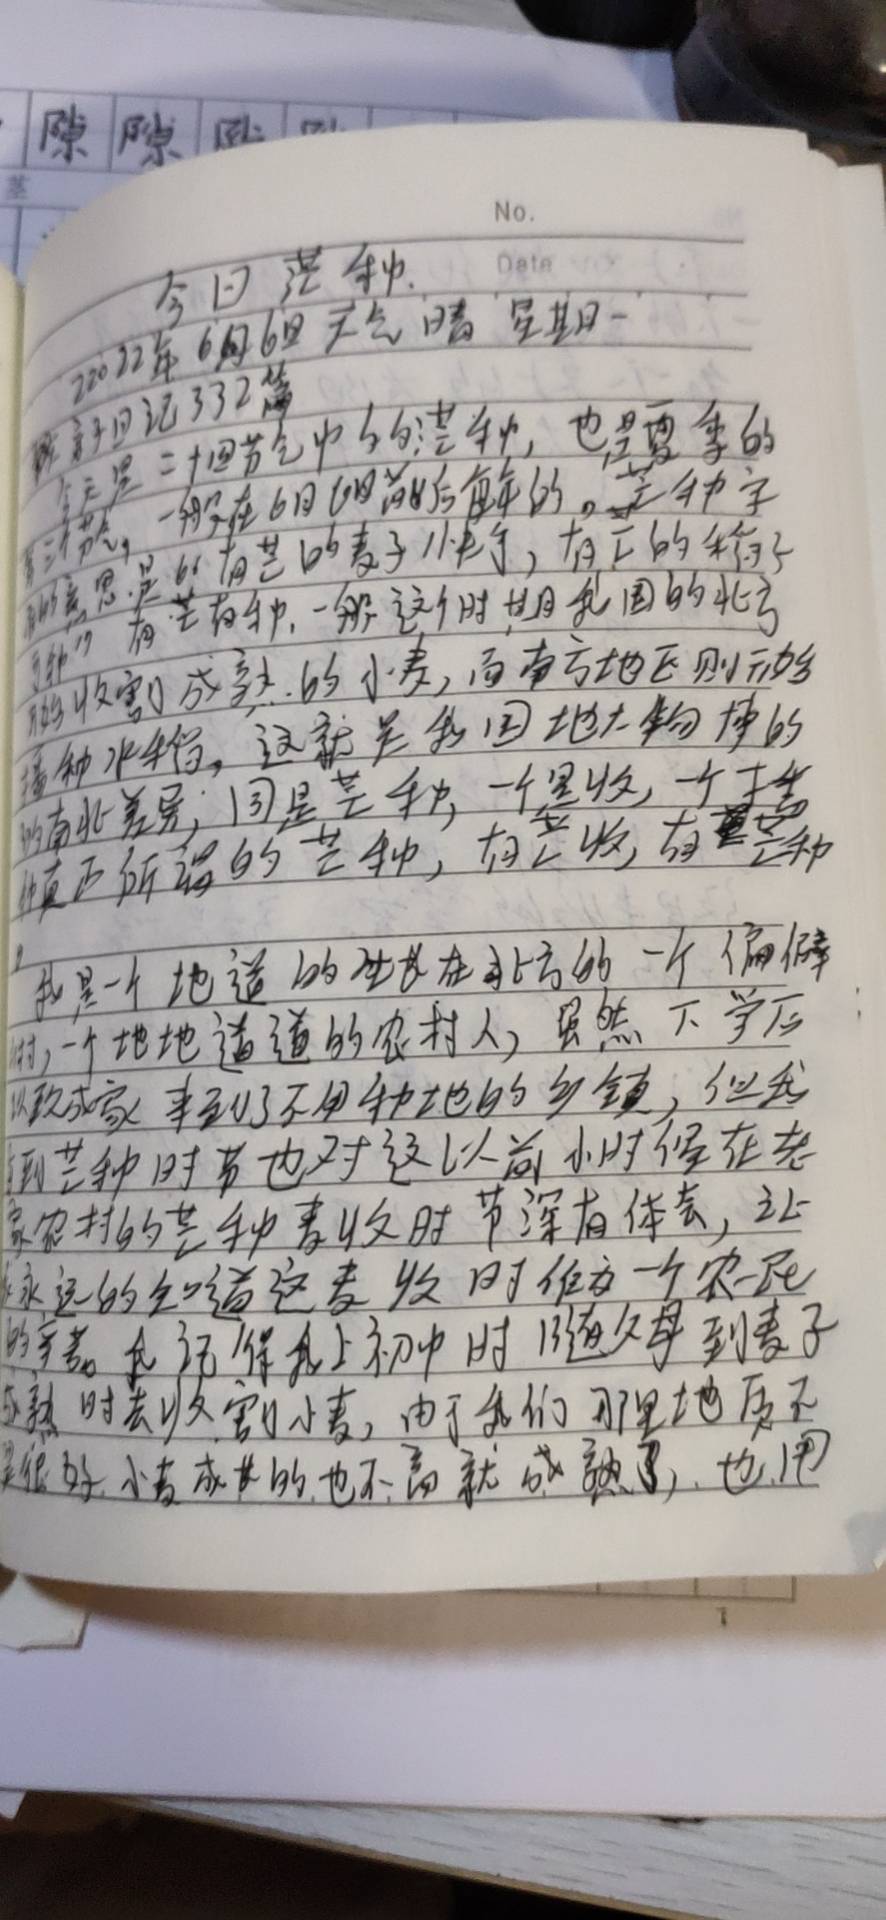 隙 隙
茎
No.
Date
今日芒种.
22022年6月6日 天气 晴 星期一
亲子日记332篇
今天是二十四节气中的芒种, 也是夏季的
第三个节气, 一般在6月6日前后的。芒种字
面的意思是"有芒的麦子快收, 有芒的稻子
可种" 有芒有种. 一般这个时期我国的北方
开始收割成熟.的小麦, 而南方地区则开始
播种水稻。这就是我国地大物博的
的南北差异; 同是芒种, 一个是收, 一个播
种真正所谓的芒种, 有芒收, 有芒种
我是一个地道的生长在北方的一个偏僻
村, 一个地地道道的农村人, 虽然下学后
以致成家来到了不用种地的乡镇, 但我
到芒种时节也对这以前小时候在老
家农村的芒种麦收时节深有体会, 让
我永远的知道这麦收时作为一个农民
的辛苦。我记得我上初中时随父母到麦子
成熟时去收割小麦, 由于我们那里地质不
是很好.小麦成长的.也不高就成熟了, 也.用
1